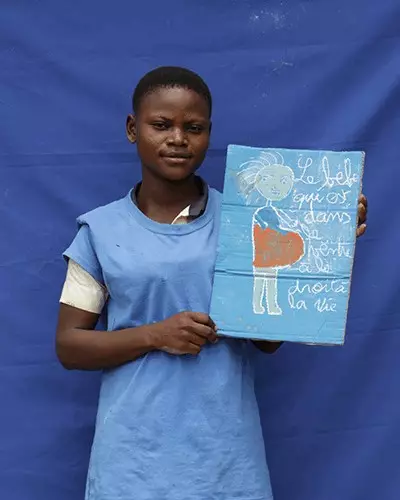 Le bébé
qui est
dans
le
ventre
a le
droit à
la vie